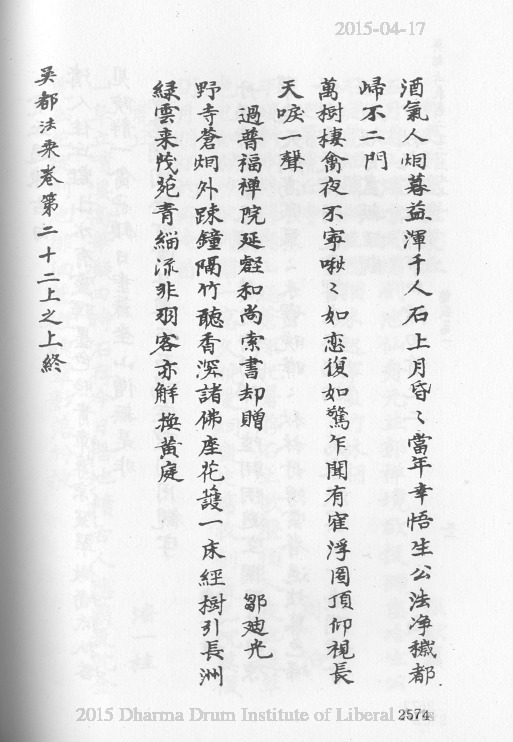 2015-04-17
酒氣人烟暮益渾千人石上月昏〻當年幸悟生公法净穢都
歸不二門
萬樹棲禽夜不寧啾〻如恋復如驚乍聞有寉浮圖頂仰視長
天唳一聲
過普福禅院延壑和尚索書却贈　鄒廸光
野寺蒼烟外踈鐘隔竹聽香深諸佛座花護一床經樹引長洲
綠雲来茂苑青緇流非羽客亦觧換黄庭
吳都法乘卷第二十二上之上終
2574
2015 Dharma Drum Institute of Liberal